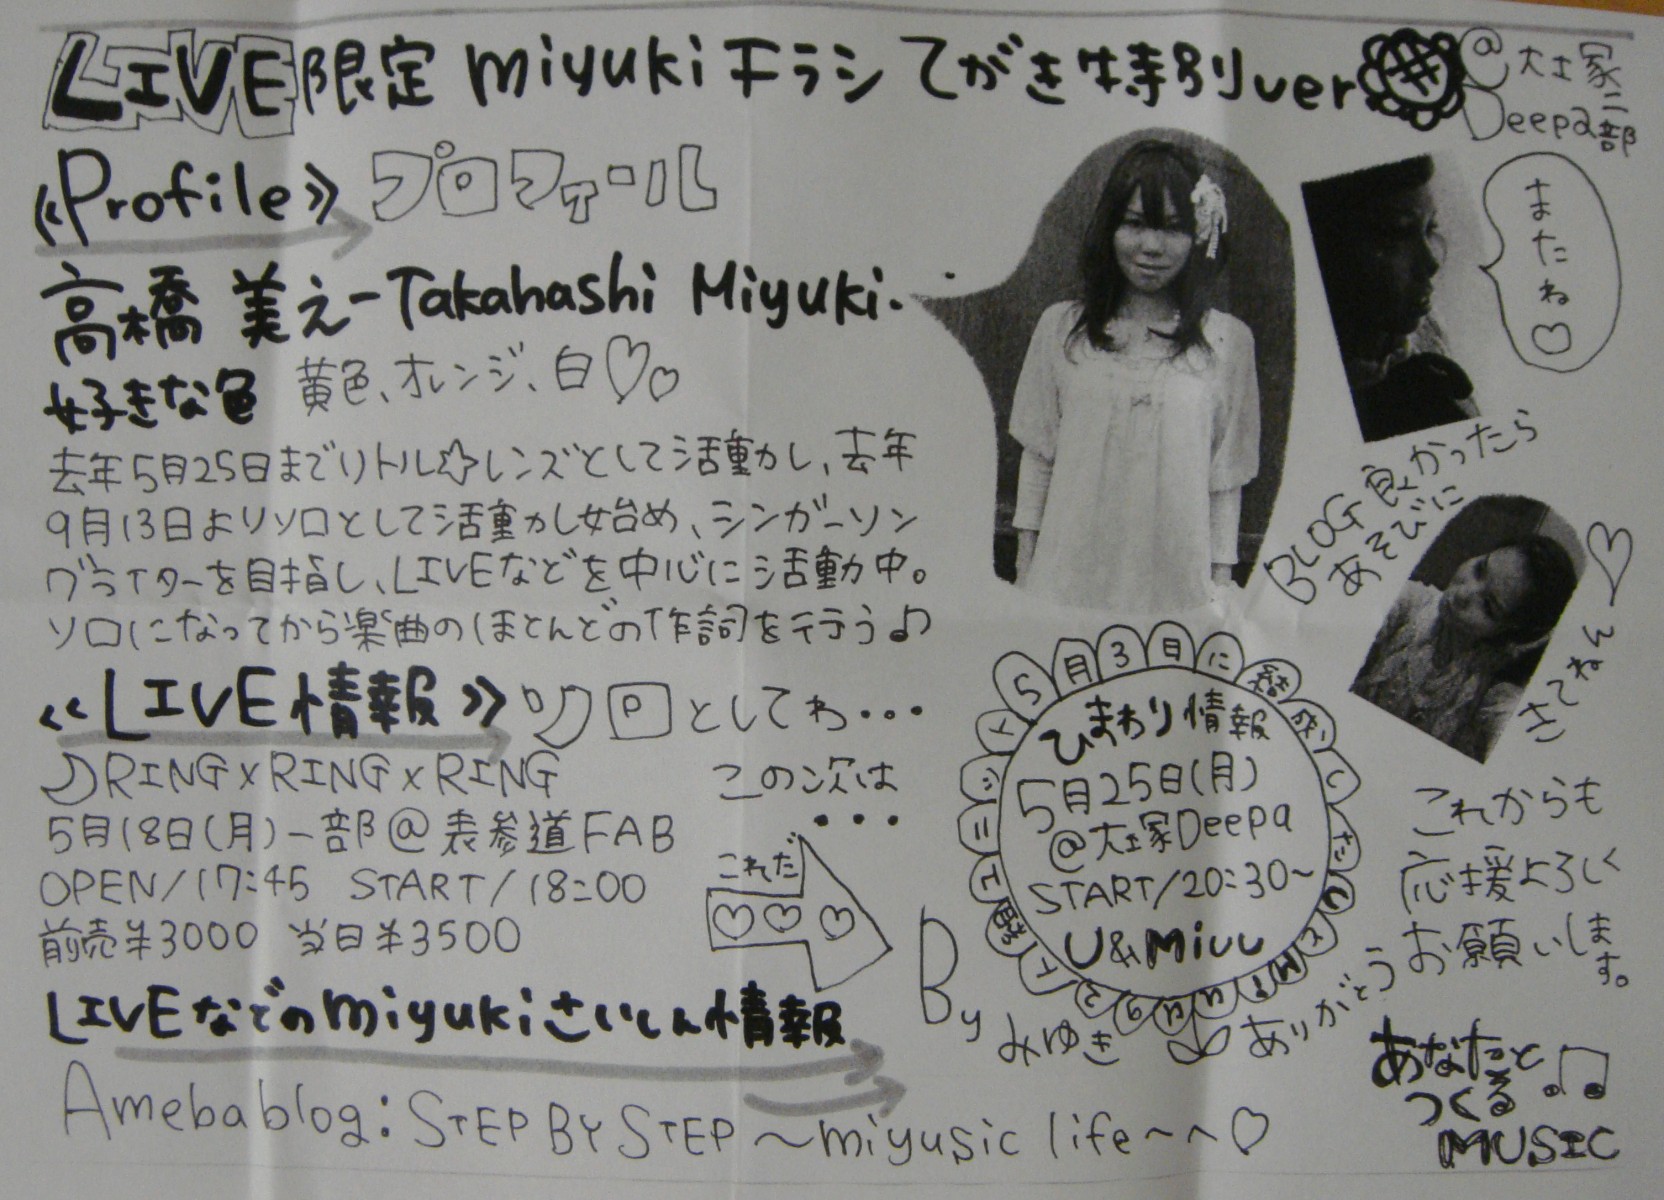 LIVE限定 miyukiチラシ てがき特別ver
@大塚
Deepa二部
《Profile》 プロフィール
高橋 美え-Takahashi Miyuki.
好きな色 黄色、オレンジ、白♡♡
去年5月25日までリトル☆レンズとして活動し、去年
9月13日よりソロとして活動し始め、シンガーソン
グライターを目指し、LIVEなどを中心に活動中。
ソロになってから楽曲のほとんどの作詞を行う♪
またね♡
BLOG良かったら
あそびに
きてねん♡
《LIVE情報》 ソロとしてわ・・・
♪RING×RING×RING
5月18日(月)一部@表参道FAB
OPEN/17:45 START/18:00
前売¥3000 当日¥3500
この次は
・・・
これだ
♡♡♡
5月3日に結成したU&Miuu
ひまわり情報
5月25日(月)
@大塚Deepa
START/20:30~
U&Miuu
これからも
応援よろしく
お願いします。
By みゆき
ありがとう
LIVEなどのmiyukiさいしん情報
Amebablog:STEP BY STEP ~miyusic life~へ♡
あなたと
つくる
MUSIC